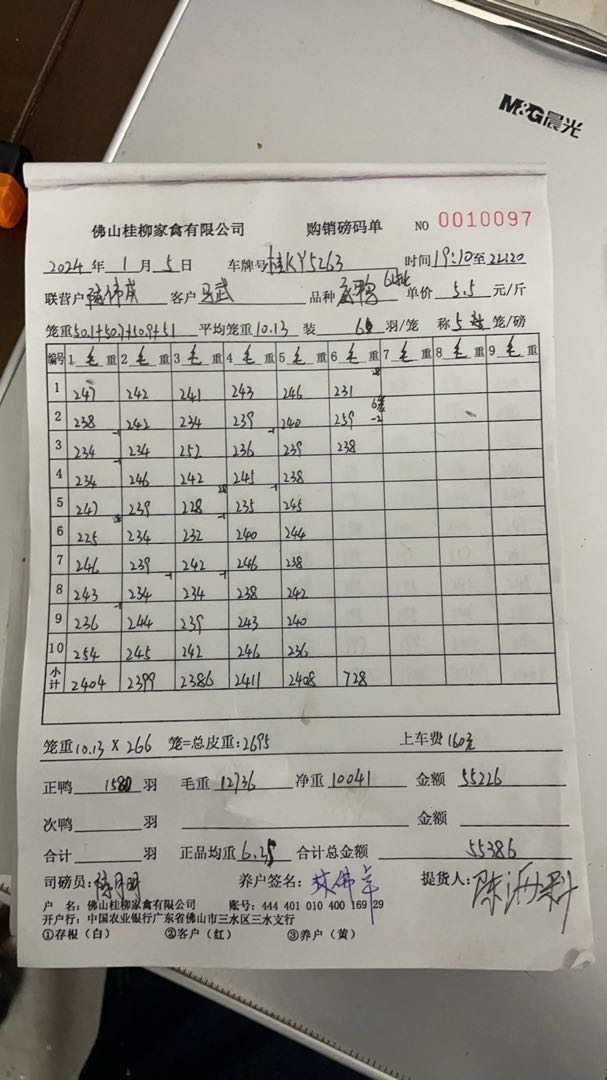 M&G晨光
佛山桂柳家禽有限公司 购销磅码单 NO 0010097
2024 年 1 月 5 日 车牌号 桂KY5263 时间 19:10 至 22:20
联营户 客户 马武 品种 单价 5.5 元/斤
笼重 50.1+50.7+50.9+51 平均笼重 10.13 装 6 羽/笼 称 5 笼/磅
编号 1 毛 重 2 毛 重 3 毛 重 4 毛 重 5 毛 重 6 毛 重 7 毛 重 8 毛 重 9 毛 重
1 247 242 241 243 246 231
2 238 242 234 239 240 259 -2
3 234 234 252 236 239 238
4 234 246 242 245 238
5 247 239 228 235 245
6 225 234 232 240 244
7 246 239 242 246 238
8 243 234 234 238 242
9 236 244 239 243 240
10 254 245 242 246 236
小计 2404 2399 2386 2411 2408 728
笼重 10.13 × 266 笼=总皮重: 2695 上车费 160元
正鸭 1580 羽 毛重 12736 净重 10041 金额 55226
次鸭 羽 金额
合计 羽 正品均重 6.35 合计总金额 55386
司磅员: 养户签名: 提货人:
户 名: 佛山桂柳家禽有限公司 账号: 444 401 010 400 169 29
开户行: 中国农业银行广东省佛山市三水区三水支行
①存根（白） ②客户（红） ③养户（黄）